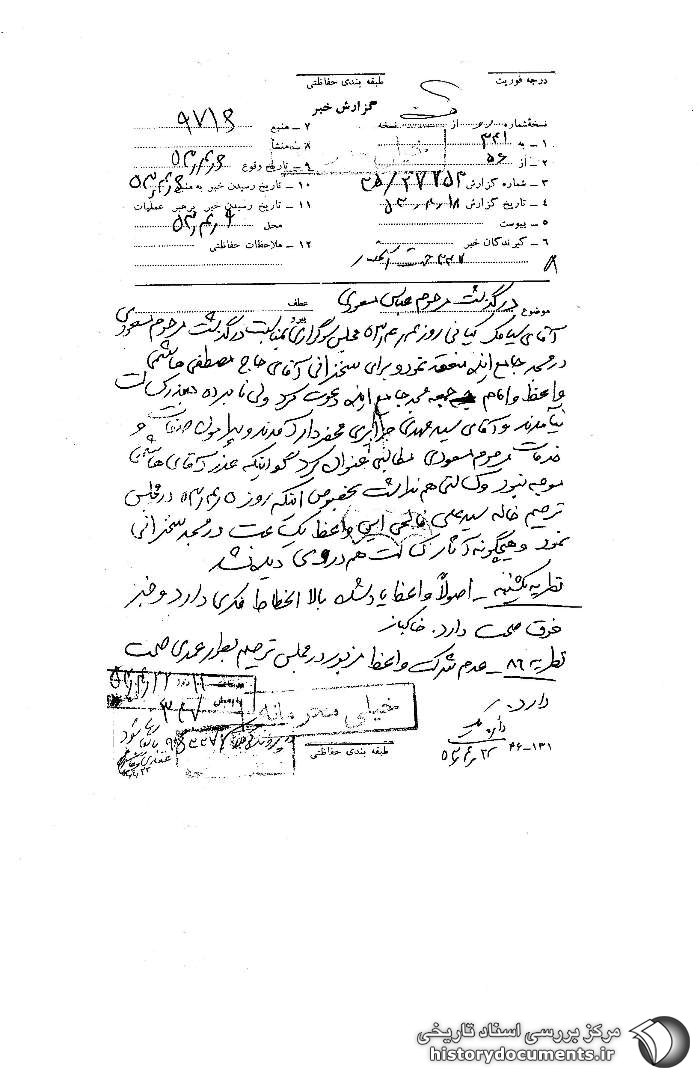 درجه فوریت
طبقه بندی حفاظتی
گزارش خبر
نسخهٔ شماره از نسخه
۱ - به ۳۴۱
۲ - از ۵۶
۳ - شماره گزارش ۳۷۲۵۲/۲۵
۴ - تاریخ گزارش
۵ - پیوست
۶ - گیرندگان خبر
۷ - منبع ۹۷۱۶
۸ - منشأ
۹ - تاریخ وقوع
۱۰ - تاریخ رسیدن خبر به منبع
۱۱ - تاریخ رسیدن خبر برهبر عملیات
محل
۱۲ - ملاحظات حفاظتی
موضوع درگذشت مرحوم عباس مسعودی
عطف
پیرو
آقای سیامک کیانی روز مجلس سوگواری بمناسبت درگذشت مرحوم مسعودی
در مسجد جامع منعقد نمود و برای سخنرانی آقای حاج مصطفی هاشمی
واعظ و امام جمعه مسجد جامع دعوت کرد ولی نامبرده بعذر کسالت
نیامدند و آقای سید مهدی جزایری محضردار آمدند و پیرامون و
خدمات مرحوم مسعودی مطالبی عنوان کرد گو اینکه عذر آقای هاشمی
موجه نبود و کسالتی هم نداشت بخصوص اینکه روز در مجلس
ترحیم خاله سید علی این واعظ یک ساعت در مسجد سخنرانی
نمود و هیچگونه آثار کسالت هم در وی دیده نشد
نظریه یکشنبه - اصولاً واعظ یاد شده بالا انحطاط فکری دارد و خبر
فوق صحت دارد. خاکباز
نظریه - عدم شرکت واعظ مزبور در مجلس ترحیم بطور عمدی صحت
دارد.
خیلی محرمانه
طبقه بندی حفاظتی
۱۳۱-۴۶
مرکز بررسی اسناد تاریخی
historydocuments.ir